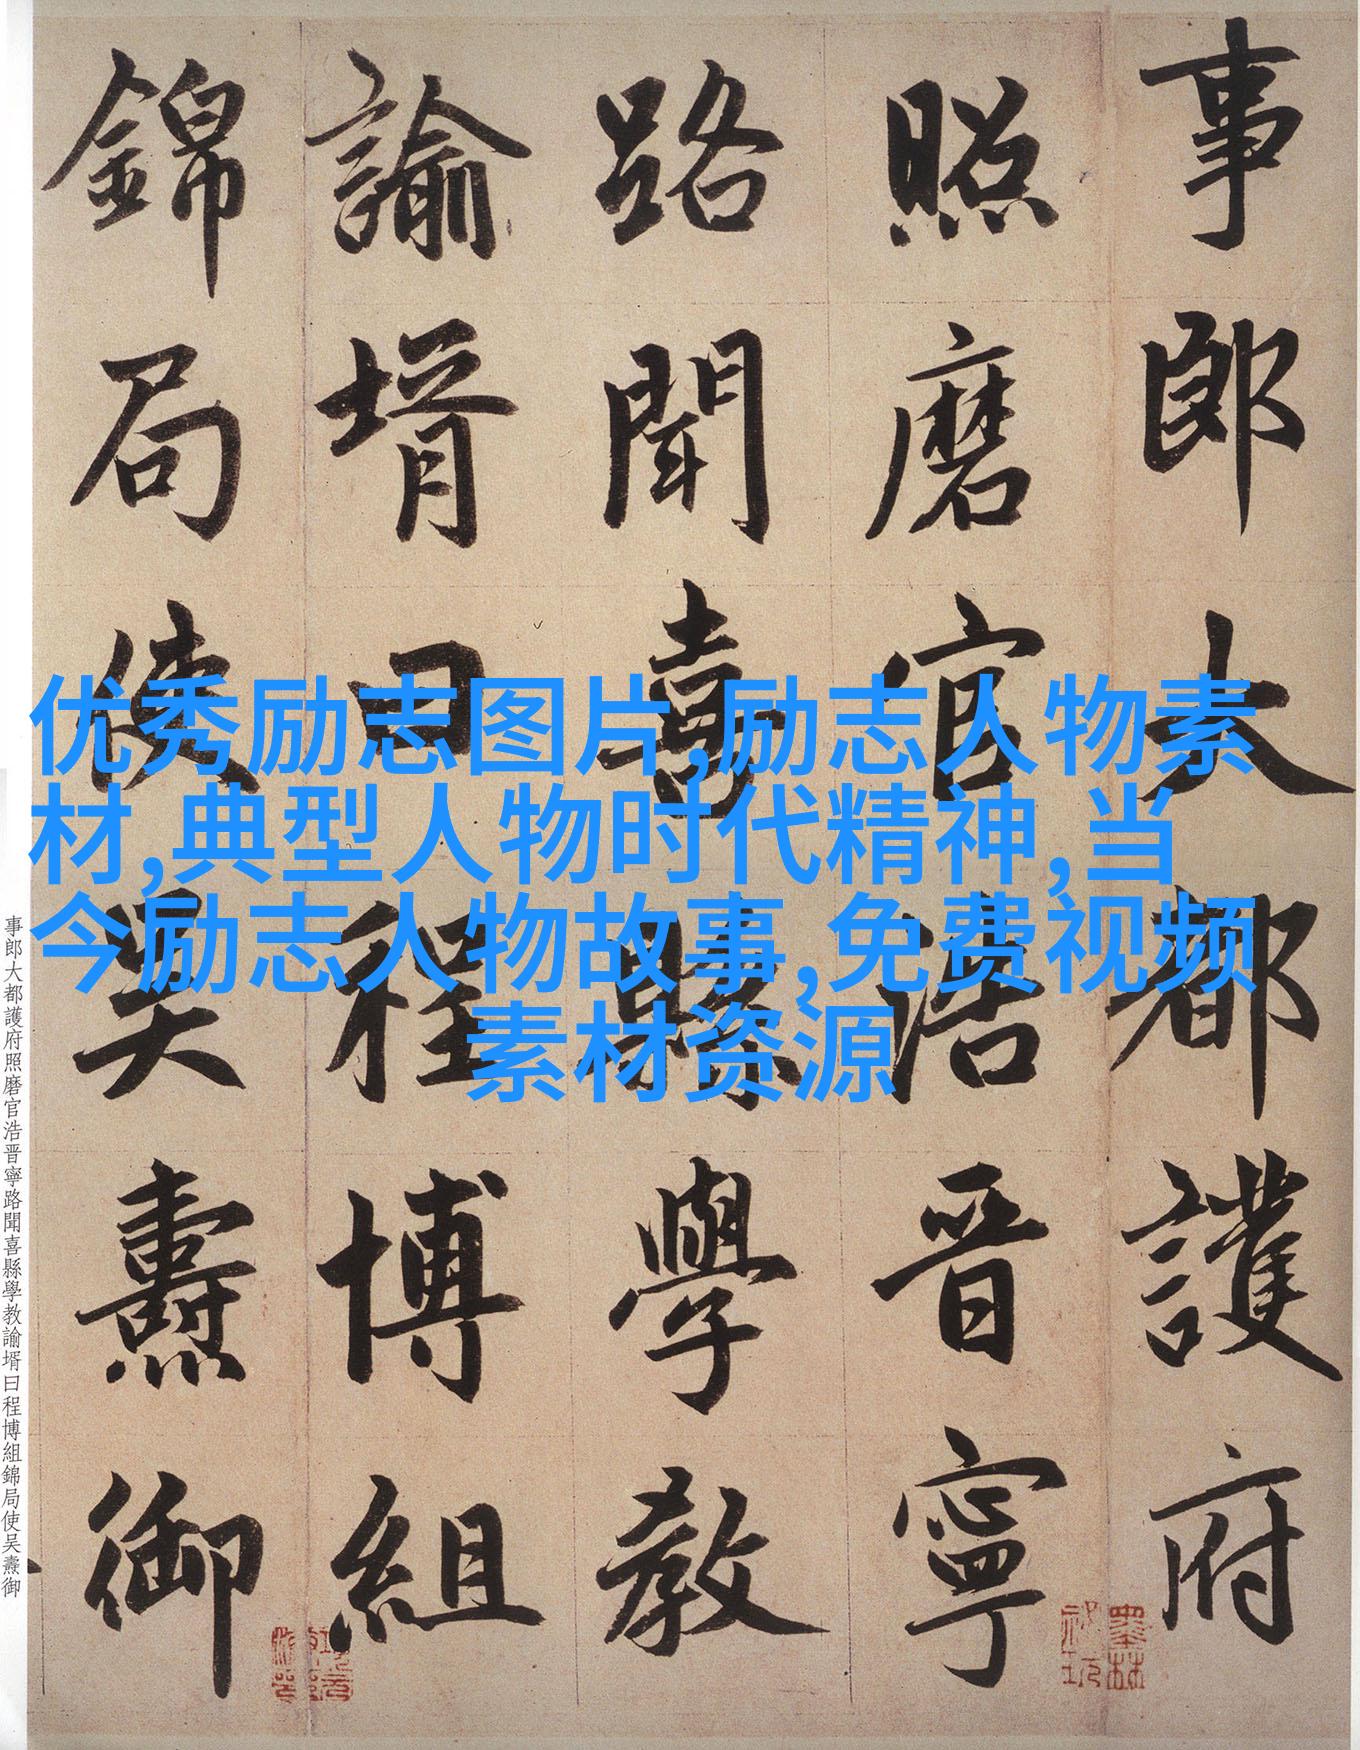 事郎大都護府
照磨官浩晋寧
路聞喜縣學教
諭壻曰程博組
錦局使吴燾御
优秀励志图片,励志人物素
材,典型人物时代精神,当
今励志人物故事,免费视频
素材资源
事郎大都護府照磨官浩晋寧路聞喜縣學教諭壻曰程博組錦局使吴燾御